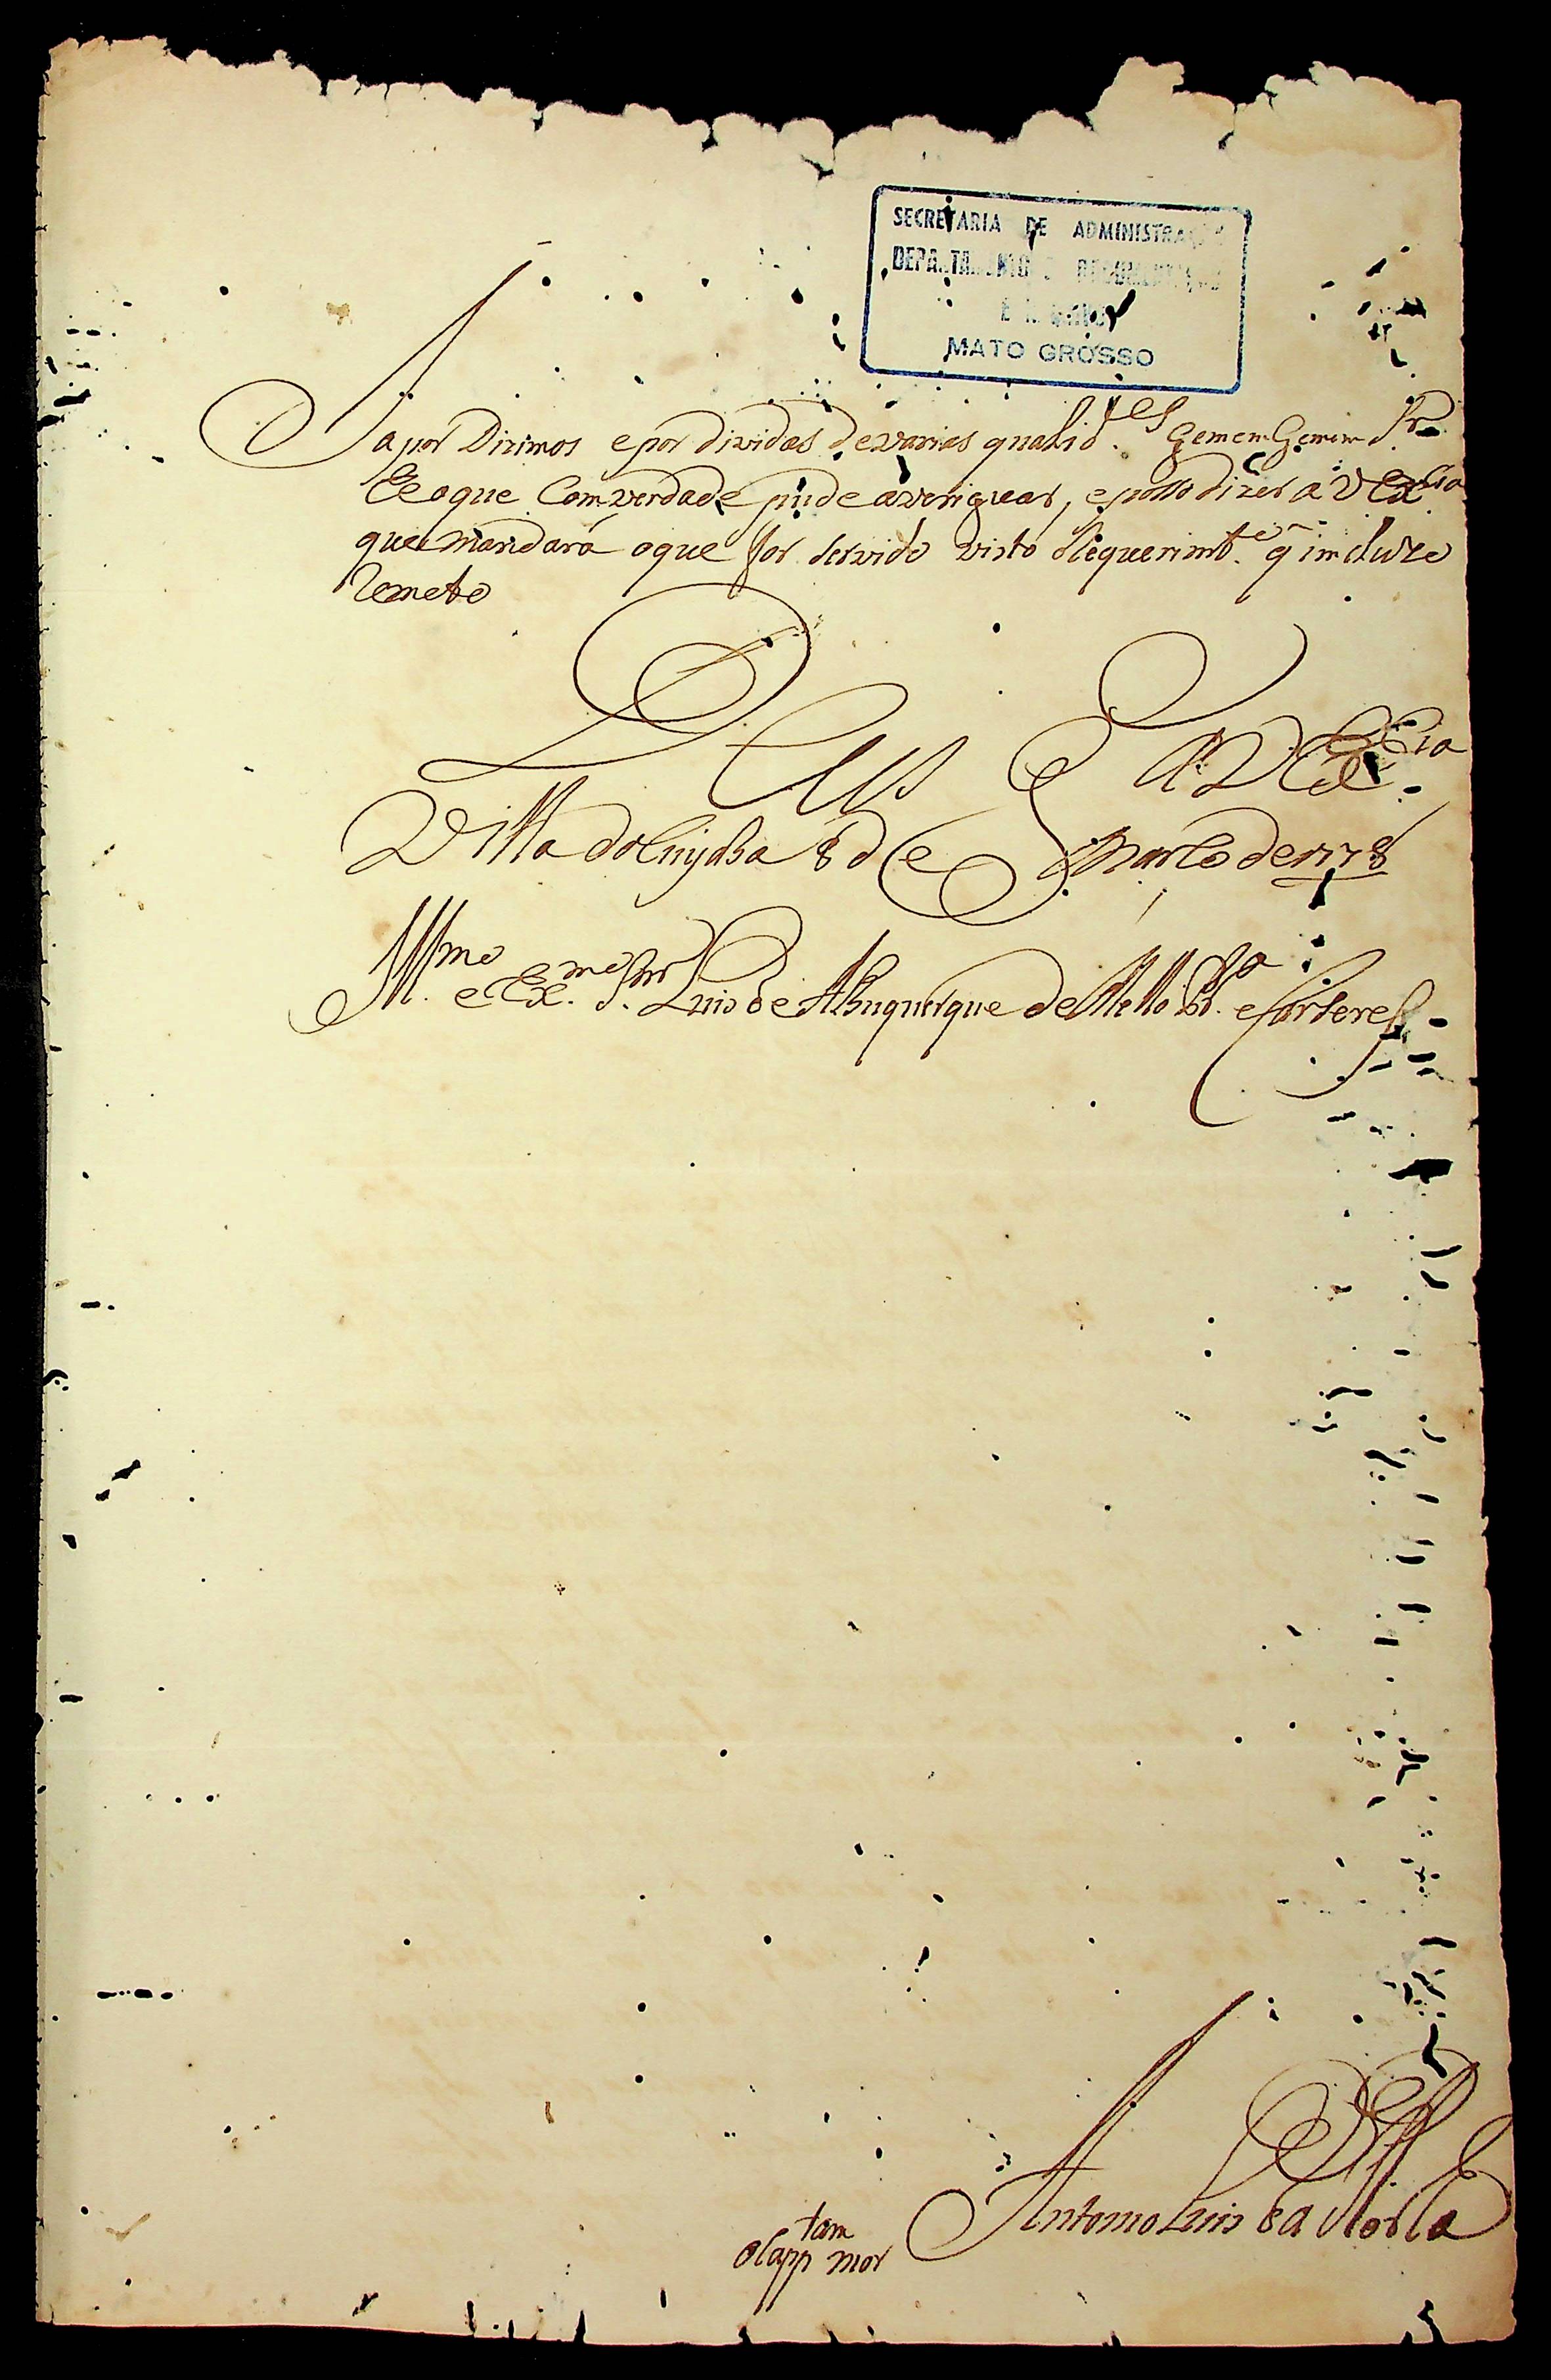 SECRETARIA DE ADMINISTRAÇÃO
DEPARTAMENTO DE DOCUMENTAÇÃO
E ARQUIVO
MATO GROSSO
Ja por Dizimos e por dividas de varias qualid.es Gemem Gemem Sr.
He o que Com verdade pude averiguar, e posso dizer a V Ex.cia
que mandará o que for servido visto o Requerimt.e q̃ imcluzo
Remeto
Deus G a V Ex.cia
Villa do Cuyaba 8 de Março de 1778
Ill.mo e Ex.mo Snr. Luis de Albuquerque de Mello Pr.a e Caseres
Antonio Luis da Rocha
o Capp.tam mor